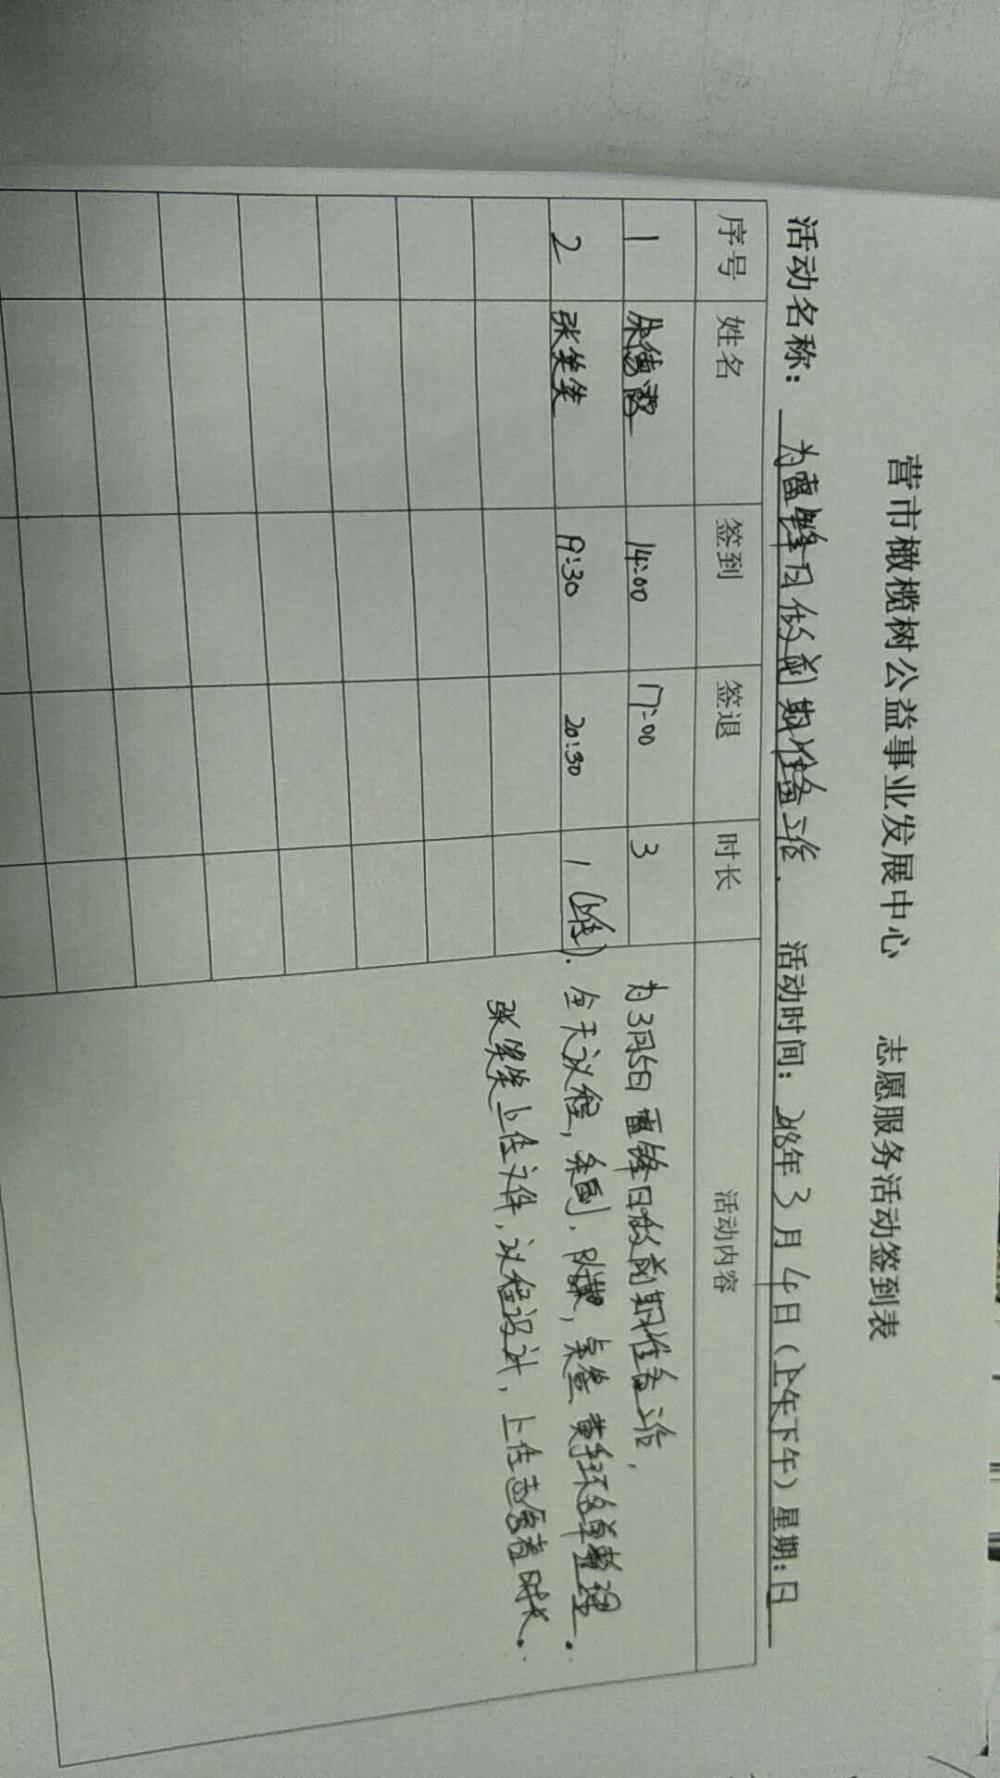 营市橄榄树公益事业发展中心 志愿服务活动签到表
活动名称：为雷锋日做前期准备工作. 活动时间：2018年3月4日（上午下午）星期：日
序号 姓名 签到 签退 时长 活动内容
1 14:00 17:00 3
2 张笑笑 19:30 20:30 1（上传）.
为3月5日雷锋日做前期准备工作，
全天议程，条幅，队旗，桌签，黄手环名单整理.
张笑笑上传文件，议程设计，上传志愿者时长.